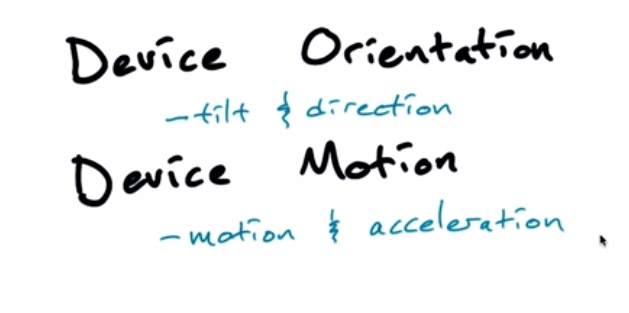 Device Orientation
- tilt & direction
Device Motion
- motion & acceleration